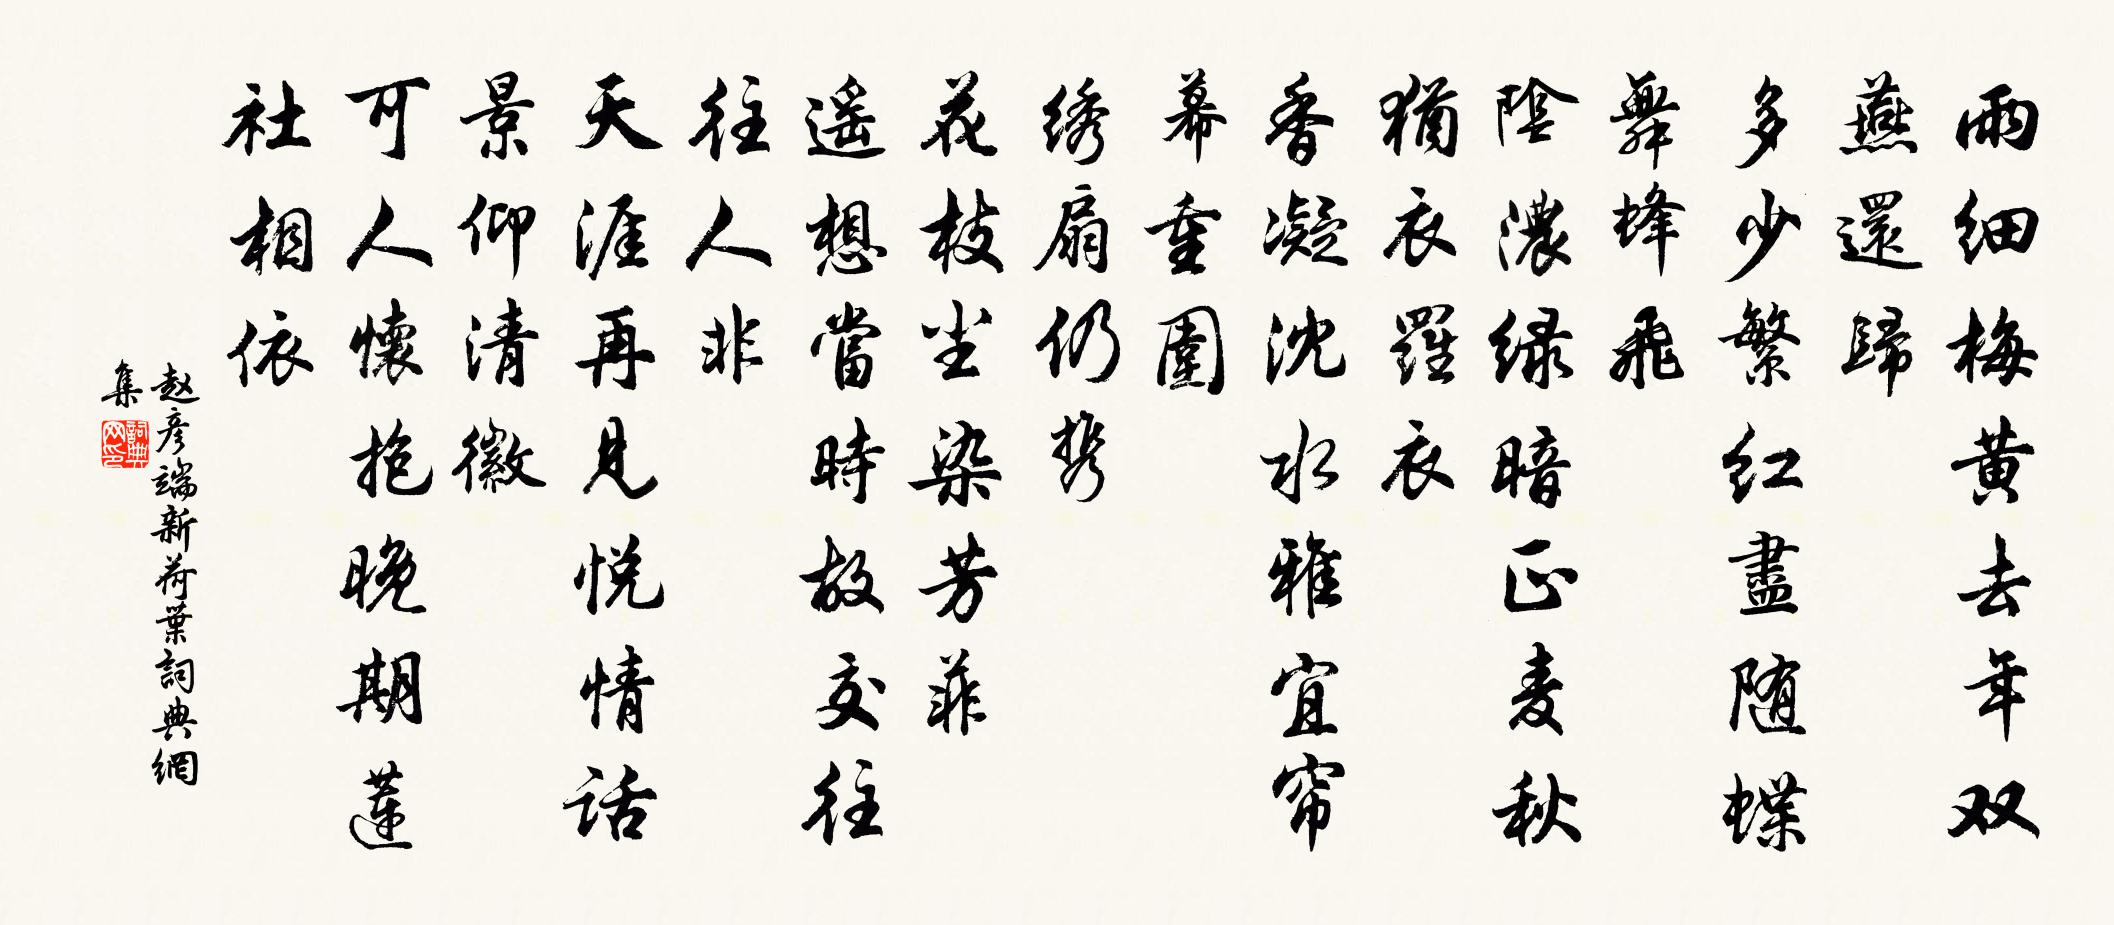 雨细梅黄去年双
燕還歸
多少繁红盡随蝶
舞蜂飛
陰濃緑暗正麦秋
猶衣羅衣
香凝沈水雅宜帘
幕重圍
绣扇仍携
花枝尘染芳菲
遥想當時故交往
往人非
天涯再見悦情話
景仰清徽
可人懷抱晚期蓮
社相依
赵彦端新荷葉詞典網
集
詞典
网印